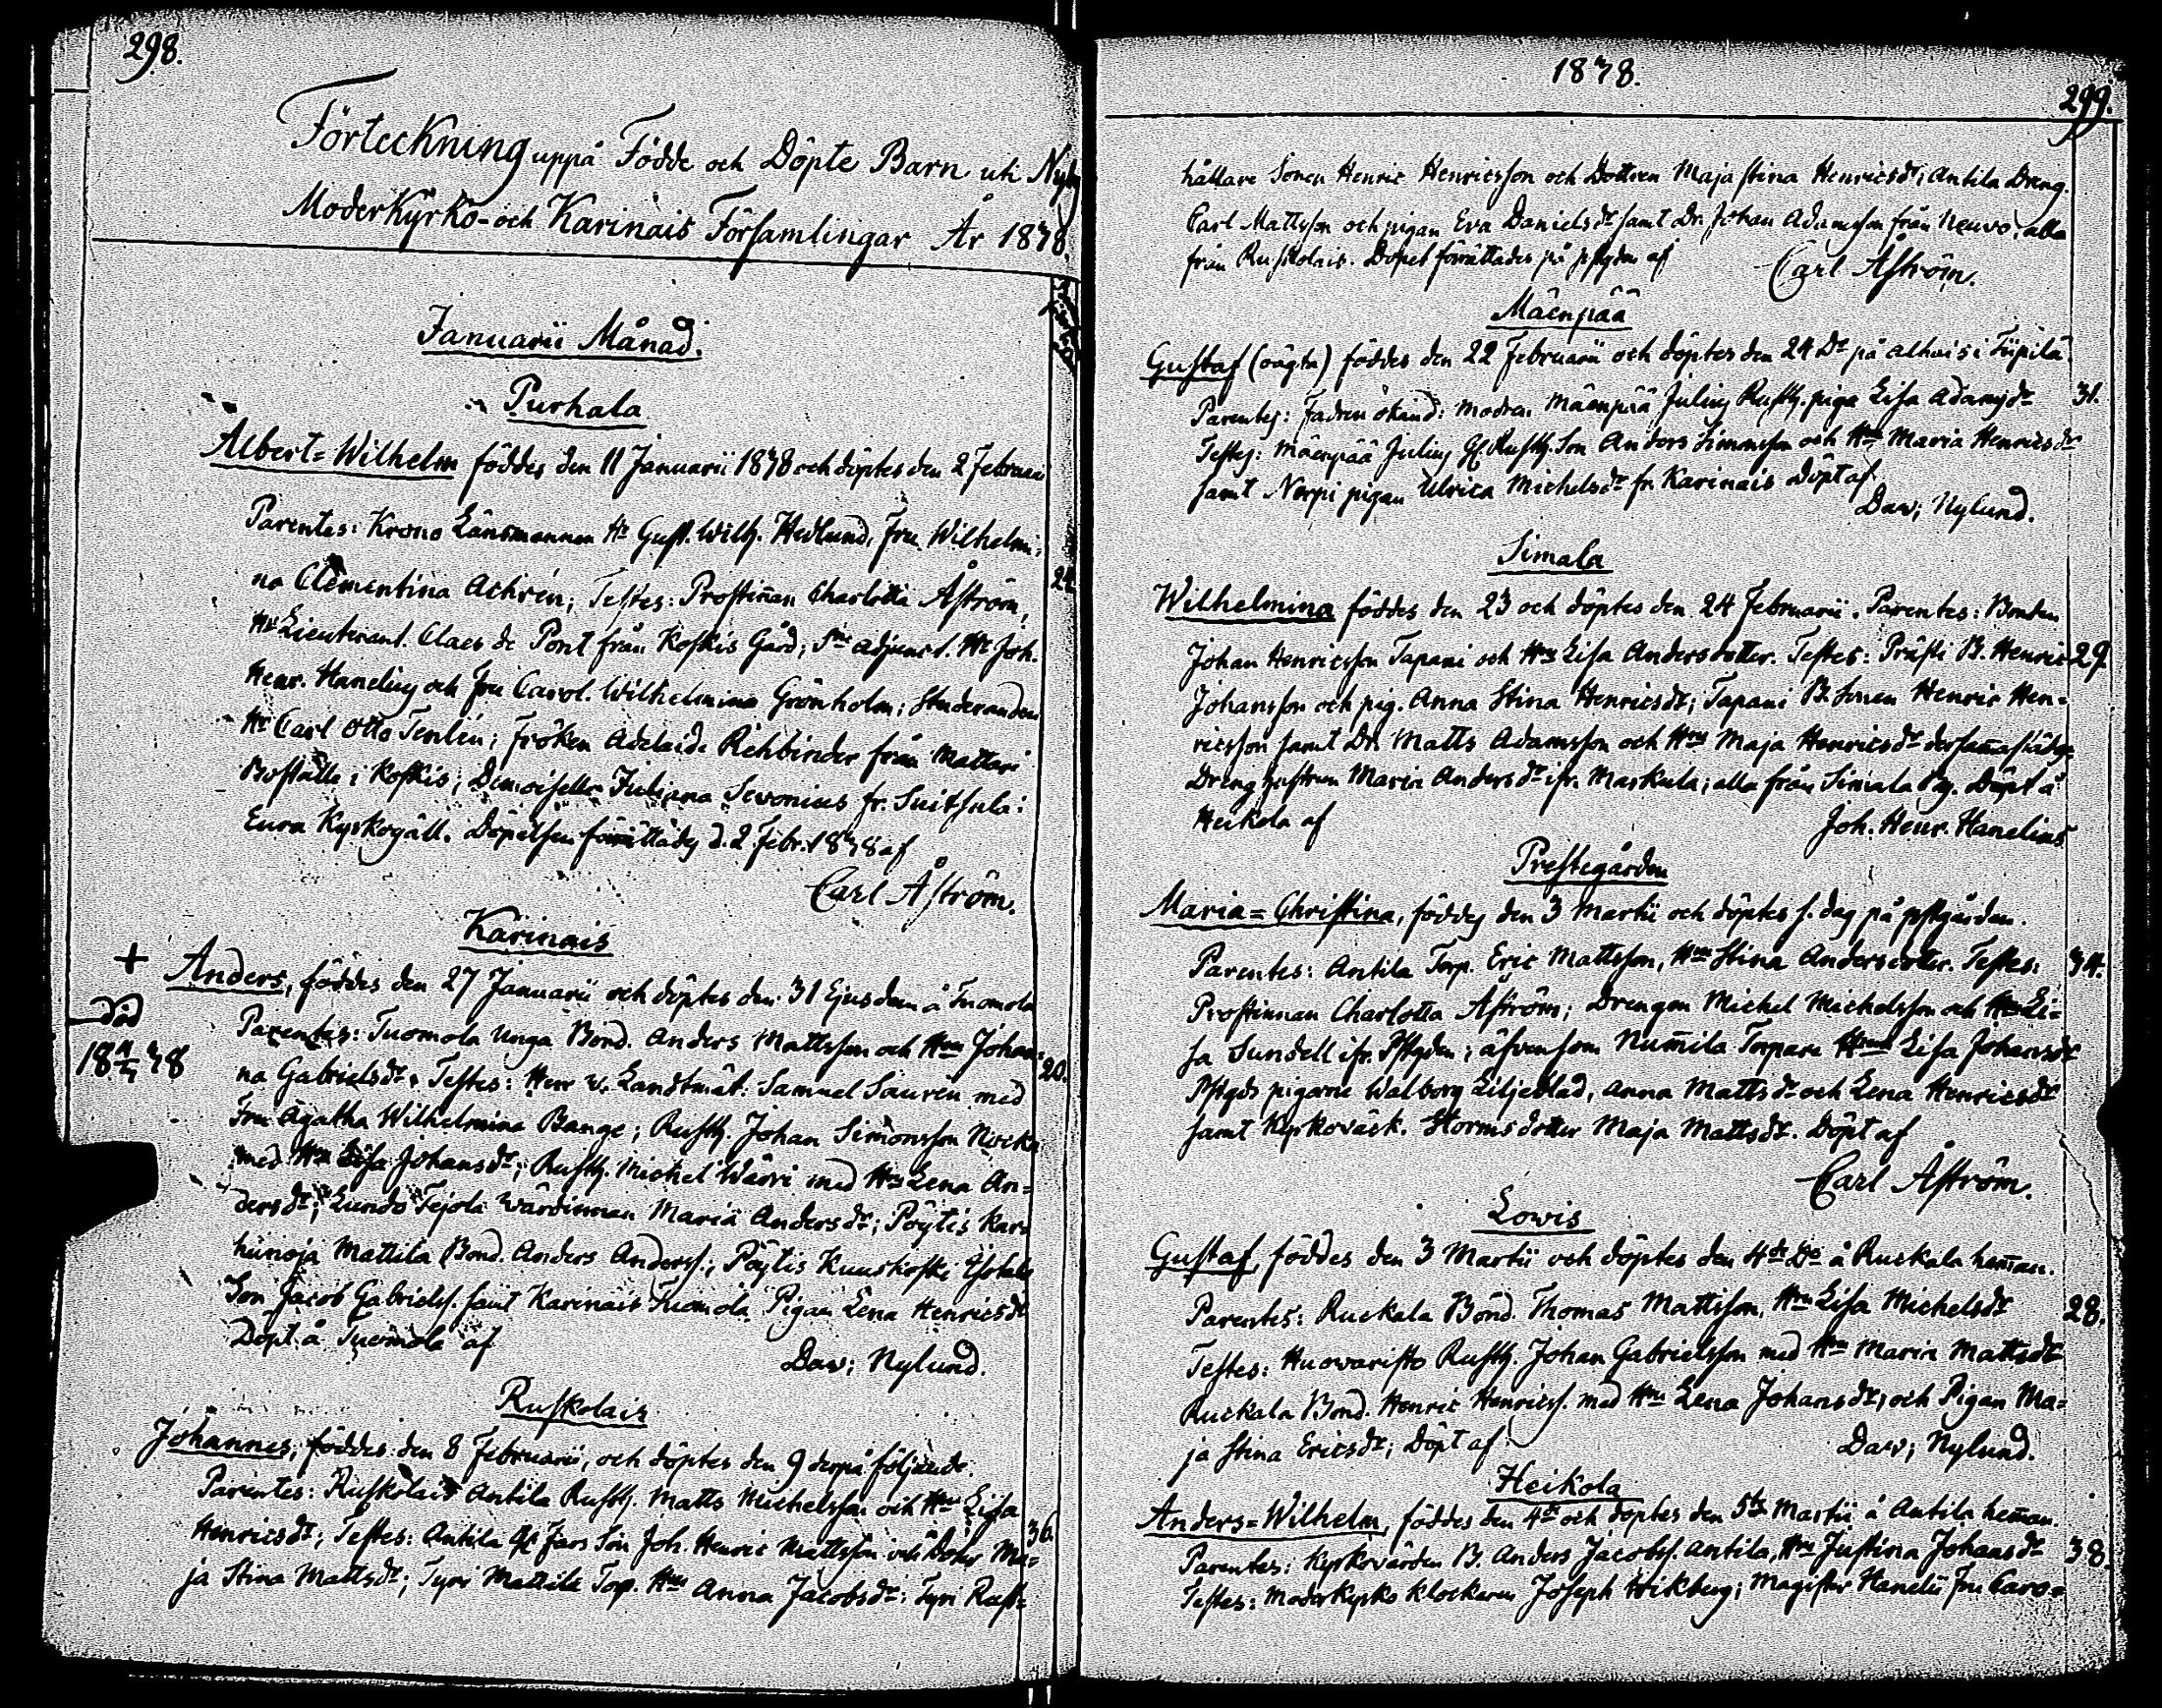 298.
Förteckning uppå Födde och Döpte Barn uti Nykÿ
Moderkyrko- och Karinais Församlingar År 1838.
Januarii Månad.
Purhala
Albert=Wilhelm föddes den 11 Januarii 1838 och döptes den 2 Februarii
Parentes: Krono Länsmannen Hr Gust. Wilh. Hedlund, Fru Wilhelmi-
na Clementina Achrén; Testes: Prostinnan Charlotta Åström,
24.
Hr Lieutenant. Claes de Pont från Koskis Gård; Sne adjunct. Hr Joh.
Henr. Hanelius och Fru Carol. Wilhelmina Grönholm; Studeranden
Hr Carl Otto Tenlén; Fröken Adelaide Rehbinder från Mattari
Boställe i Koskis; Demoiselle Juliana Sevonius fr. Suitsula i
Eura Kyrkogäll. Döpelsen förrättades d. 2 Febr. 1838 af
Carl Åström.
Karinais
+ Anders, föddes den 27 Januarii och döptes den 31 Ejusdem å Tuomola
död
Parentes: Tuomola unga Bond. Anders Mattsson och Hru Johan-
18 38
na Gabrielsdr. Testes: Herr v. Landtmät: Samuel Saurén med
20.
Fru Agatha Wilhelmina Bange; Rusth. Johan Simonsson Nocka
med Hru Lisa Johansdr; Rusth. Michel Wärri med Hru Lena An-
dersdr; Lundo Tejola Wärdinnan Maria Andersdr; Pöytis Kar-
hunoja Mattila Bond. Anders Anderss.; Pöytis Kuuskoski Isotalo
Son Jacob Gabrielss. samt Karinais Tuomola Pigan Lena Henricsdr
Döpt å Tuomola af
Daw; Nylund.
Ruskolais
Johannes, föddes den 8 Februarii, och döptes den 9 derpå följande.
Parentes: Ruskolais Antila Rusth. Matts Michelsson och Hru Lisa
Henricsdr; Testes: Antila Gl Fars Son Joh. Henric Mattsson och Dotter Ma-
36.
ja Stina Mattsdr; Tyri Mattila Torp. Hru Anna Jacobsdr: Tyri Rust-
1838.
299.
hållare Sonen Henric Henricsson och Dottren Maja Stina Henricsdr; Antila Dreng.
Carl Mattsson och pigan Eva Danielsdr samt Dr. Johan Adamsson från Neuvo, alla
från Ruskolais. Döpet förrättades på pstgden af
Carl Åström.
Mäenpää
Gustaf (oägta) föddes den 22 Februarii och döptes den 24 Do på Alhais i Tiipilä
Parentes: Fadren okänd: modren Mäenpää Julius Rusth. piga Lisa Adamsdr
31.
Testes: Mäenpää Julius Gl. Rusth. Son Anders Simonsson och Hru Maria Henricsdr
samt Norpi pigan Ulrica Michelsdr fr. Karinais Döpt af
Daw; Nylund.
Simala
Wilhelmina föddes den 23 och döptes den 24 Februarii. Parentes: Bonden
Johan Henricsson Tapani och Hru Lisa Andersdotter. Testes: Prästi B. Henric
29
Johansson och pig. Anna Stina Henricsdr; Tapani B. Sonen Henric Hen-
ricsson samt Dr. Matts Adamsson och Hru Maja Henricsdr dersammastädes
Dreng hustrun Maria Andersdr ifr. Maskula; alla från Simala By. Döpt å
Heikola af
Joh. Henr. Hanelius
Prestegården
Maria=Christina, föddes den 3 Martii och döptes s. dag på pstgården.
Parentes: Antila Torp. Eric Mattsson, Hru Stina Andersdotter. Testes:
34.
Prostinnan Charlotta Åström; Drengen Michel Michelsson och Hru Li-
sa Sundell ifr. Pstgden; äfvensom Nummila Torpare Hru Lisa Johansdr
Pstgds pigorne Walborg Liljeblad, Anna Mattsdr och Lena Henricsdr
samt Kyrkoväck. Storms dotter Maja Mattsdr. Döpt af
Carl Åström.
Lowis
Gustaf, föddes den 3 Martii och döptes den 4de Do å Ruckala hemman.
Parentes: Ruckala Bond. Thomas Mattsson, Hru Lisa Michelsdr
28.
Testes: Huovaristo Rusth. Johan Gabrielsson med Hru Maria Mattsdr
Ruckala Bond. Henric Henricss. med Hru Lena Johansdr, och Pigan Ma-
ja Stina Ericsdr; Döpt af
Daw; Nylund.
Heikola
Anders=Wilhelm, föddes den 4de och döptes den 5te Martii å Antila hemman.
Parentes: Kyrkovärden B. Anders Jacobss. Antila, Hru Justina Johansdr
38.
Testes: Moderkyrko klockaren Joseph Wikberg; Magister Hanelii Fru Caro-